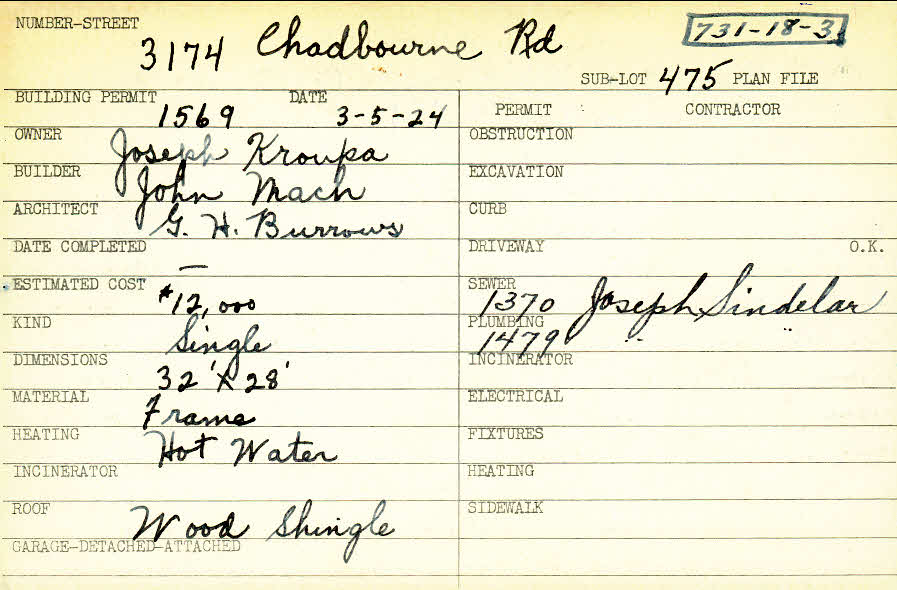 NUMBER-STREET
3174 Chadbourne Rd
731-18-3
SUB-LOT 475 PLAN FILE
BUILDING PERMIT DATE
1569 3-5-24
PERMIT CONTRACTOR
OWNER Joseph Kroupa
OBSTRUCTION
BUILDER John Mach
EXCAVATION
ARCHITECT G. H. Burrows
CURB
DATE COMPLETED —
DRIVEWAY O.K.
ESTIMATED COST #12,000
SEWER 1370 Joseph Sindelar
KIND Single
PLUMBING 1479 " "
DIMENSIONS 32' X 28'
INCINERATOR
MATERIAL Frame
ELECTRICAL
HEATING Hot Water
FIXTURES
INCINERATOR
HEATING
ROOF Wood Shingle
SIDEWALK
GARAGE-DETACHED-ATTACHED